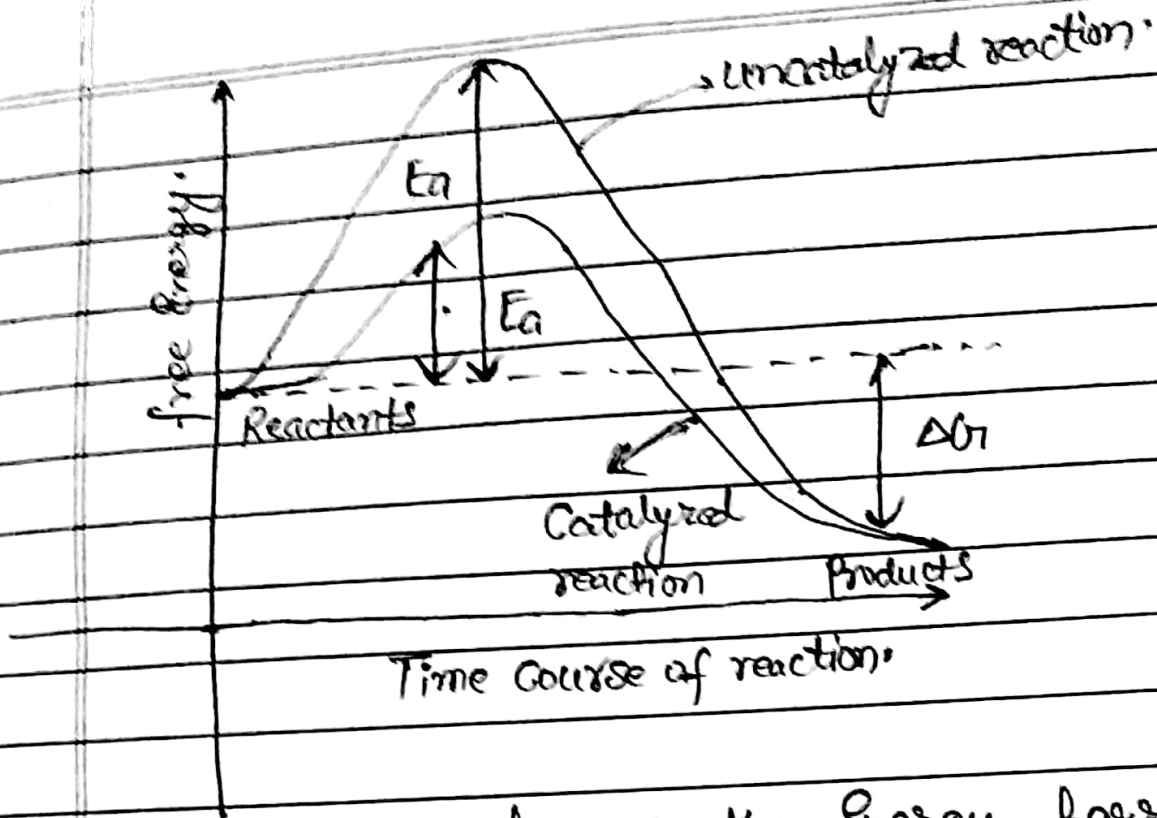 uncatalyzed reaction.
free Energy.
Ea
Ea
Reactants
ΔG
Catalyzed
reaction
Products
Time course of reaction.